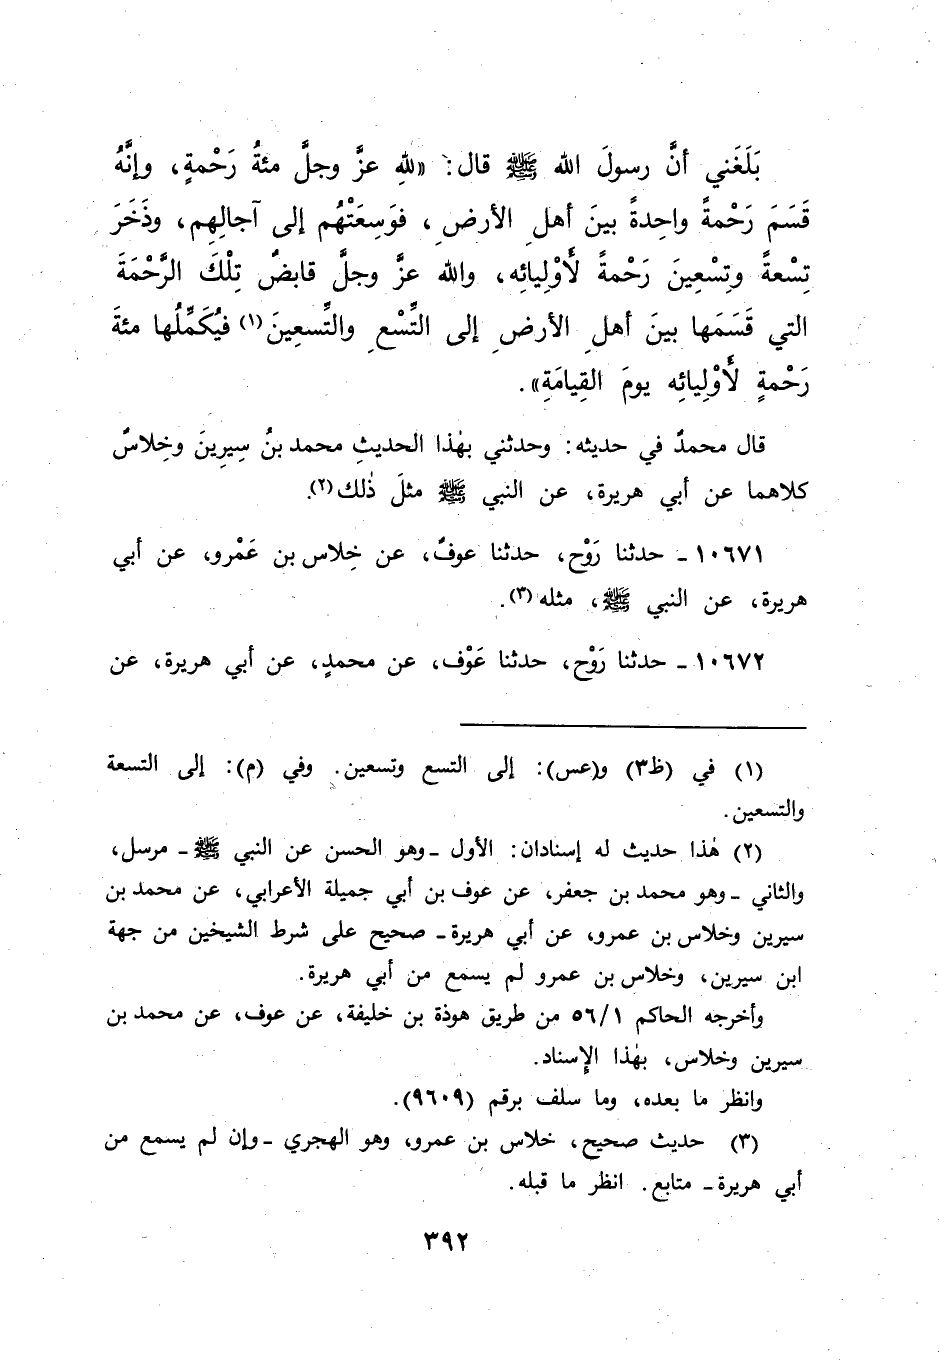 بَلَغَني أنَّ رسولَ الله ﷺ قال: «للهِ عزَّ وجلَّ مئةُ رَحْمةٍ، وإنَّهُ
قَسَمَ رَحْمةً واحِدةً بينَ أهلِ الأرضِ، فوَسِعَتْهُم إلى آجالِهِم، وذَخَرَ
تِسْعةً وتِسْعِينَ رَحْمةً لأَوْلِيائِه، والله عزَّ وجلَّ قابضٌ تِلْكَ الرَّحْمَةَ
التي قَسَمَها بينَ أهلِ الأرضِ إلى التِّسْعِ والتِّسعِينَ(١) فيُكَمِّلُها مئةَ
رَحْمةٍ لأَوْلِيائِه يومَ القِيامَةِ».
قال محمدٌ في حديثه: وحدثني بهٰذا الحديثِ محمد بنُ سِيرِينَ وخِلاسٌ
كلاهما عن أبي هريرة، عن النبي ﷺ مثلَ ذٰلك(٢).
١٠٦٧١ - حدثنا رَوْح، حدثنا عوفٌ، عن خِلاس بن عَمْرو، عن أبي
هريرة، عن النبي ﷺ، مثله(٣).
١٠٦٧٢ - حدثنا رَوْح، حدثنا عَوْف، عن محمدٍ، عن أبي هريرة، عن
(١) في (ظ٣) و(عس): إلى التسع وتسعين. وفي (م): إلى التسعة
والتسعين.
(٢) هٰذا حديث له إسنادان: الأول - وهو الحسن عن النبي ﷺ - مرسل،
والثاني - وهو محمد بن جعفر، عن عوف بن أبي جميلة الأعرابي، عن محمد بن
سيرين وخلاس بن عمرو، عن أبي هريرة - صحيح على شرط الشيخين من جهة
ابن سيرين، وخلاس بن عمرو لم يسمع من أبي هريرة.
وأخرجه الحاكم ٥٦/١ من طريق هوذة بن خليفة، عن عوف، عن محمد بن
سيرين وخلاس، بهٰذا الإسناد.
وانظر ما بعده، وما سلف برقم (٩٦٠٩).
(٣) حديث صحيح، خلاس بن عمرو، وهو الهجري - وإن لم يسمع من
أبي هريرة - متابع. انظر ما قبله.
٣٩٢